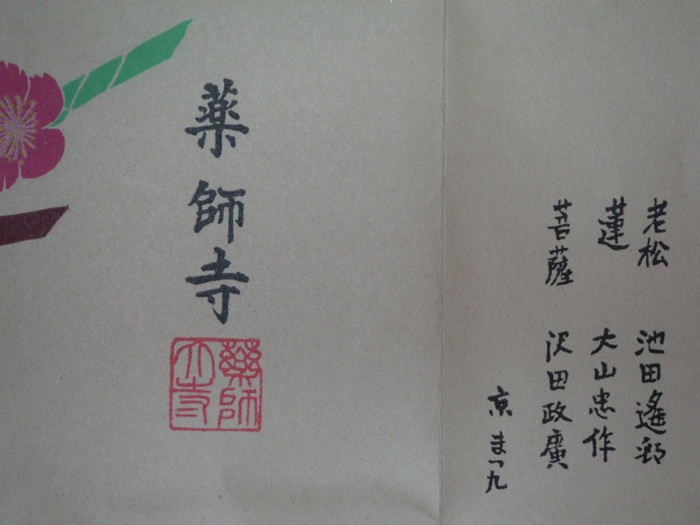 老松 池田遙邨
蓮 大山忠作
菩薩 沢田政廣
京 まつ九
薬師寺
薬師寺